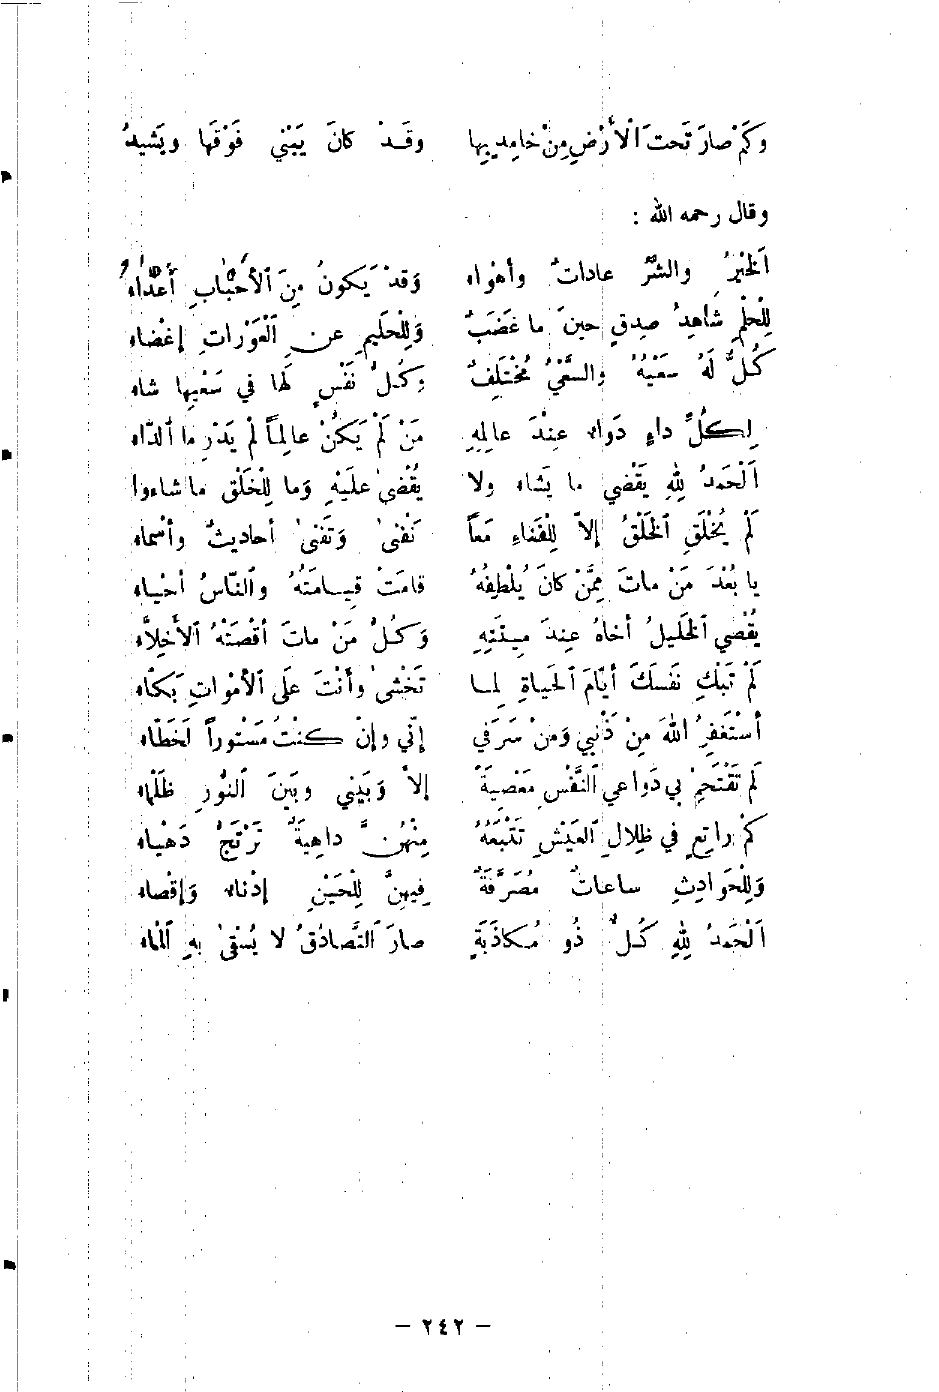 وكَمْ صارَ تَحتَ الْأَرْضِ مِنْ خامِديِها وقَـدْ كانَ يَبْني فَوْقَها ويَشيدُ
وقال رحمه الله :
اَلخَيْرُ والشَّرُّ عاداتٌ وأهْواءُ وَقدْ يَكونُ مِنَ الأَحْبابِ أَعْدَاءُ
لِلْحِلْمِ شَاهِدُ صِدقٍ حينَ ما غَضَبٌ وَلِلْحَليمِ عن الْعَوْراتِ إغْضاءُ
كُلٌّ لَهُ سَعْيُهُ والسَّعْيُ مُخْتَلِفٌ وكُلُّ نَفْسٍ لَها في سَعْيِها شاءُ
لِكُلِّ داءٍ دَواءٌ عِنْدَ عالِمِهِ مَنْ لَمْ يَكُنْ عالِماً لَمْ يَدْرِ ما الدَّاءُ
اَلْحَمدُ لِلهِ يَقْضي ما يَشاءُ ولا يُقْضىٰ علَيْهِ وَما لِلْخَلْقِ ما شاءوا
لَمْ يُخْلَقِ الخَلْقُ إلاَّ لِلْفَناءِ مَعاً نَفْنىٰ وَتَفنىٰ أحاديثٌ وأسْماءُ
يا بُعْدَ مَنْ ماتَ مِمَّنْ كانَ يُلْطِفُهُ قامَتْ قِيـامَتُهُ والنّاسُ أحْياءُ
يُقْصي الخَليلُ أخاهُ عِندَ ميـتَتِهِ وَكُلُّ مَنْ ماتَ أقْصَتْهُ الأَخِلاَّءُ
لَمْ تَبْكِ نَفسَكَ أيّامَ الحَياةِ لِمـا تَخْشىٰ وأنْتَ علَى الأمْواتِ بَكّاءُ
أسْتَغفِرُ اللهَ مِنْ ذَنْبي وَمنْ سَرَفي إنّي وإنْ كنْتُ مَسْتوراً لَخَطّاءُ
لَم تَقْتَحِمْ بي دَواعي النَّفْسِ مَعْصِيَةً إلاَّ وَبَيْني وبَينَ النُّورِ ظَلْماءُ
كمْ راتِعٍ في ظِلالِ العَيْشِ تَتْبَعُهُ مِنْهُنَّ داهِيَةٌ تَرْتَجُّ دَهْياءُ
وَلِلْحَوادِثِ ساعاتٌ مُصَرَّفَةٌ فيهِنَّ لِلْحَيْنِ إدْناءٌ وَإقْصاءُ
اَلْحَمدُ لِلهِ كُـلٌّ ذُو مُكاذَبَةٍ صارَ التَّصادُقُ لا يُسْقىٰ بهِ الماءُ
– ٢٤٢ –